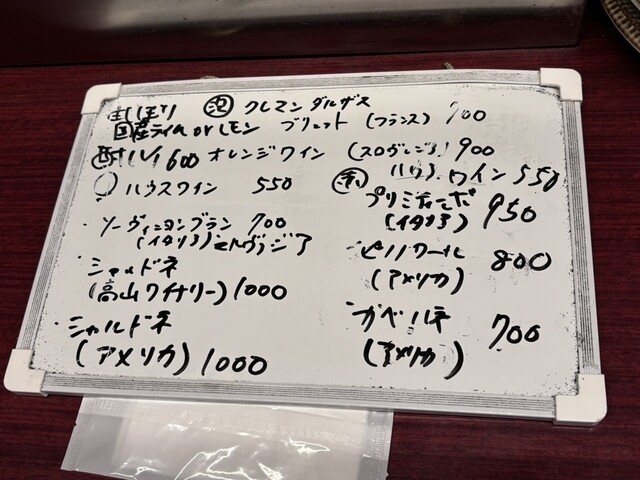 泡 クレマン ダルザス
国産ライム or レモン ブリュット (フランス) 900
600 オレンジワイン (スロヴェニア) 900
ハウスワイン 550
赤 ハウスワイン 550
・ソーヴィニヨンブラン 700
(イタリア)
・シャルドネ
(高山ワイナリー) 1000
・シャルドネ
(アメリカ) 1000
プリミティーボ
(イタリア) 950
・ピノノワール
(アメリカ) 800
・カベルネ
(アメリカ) 700